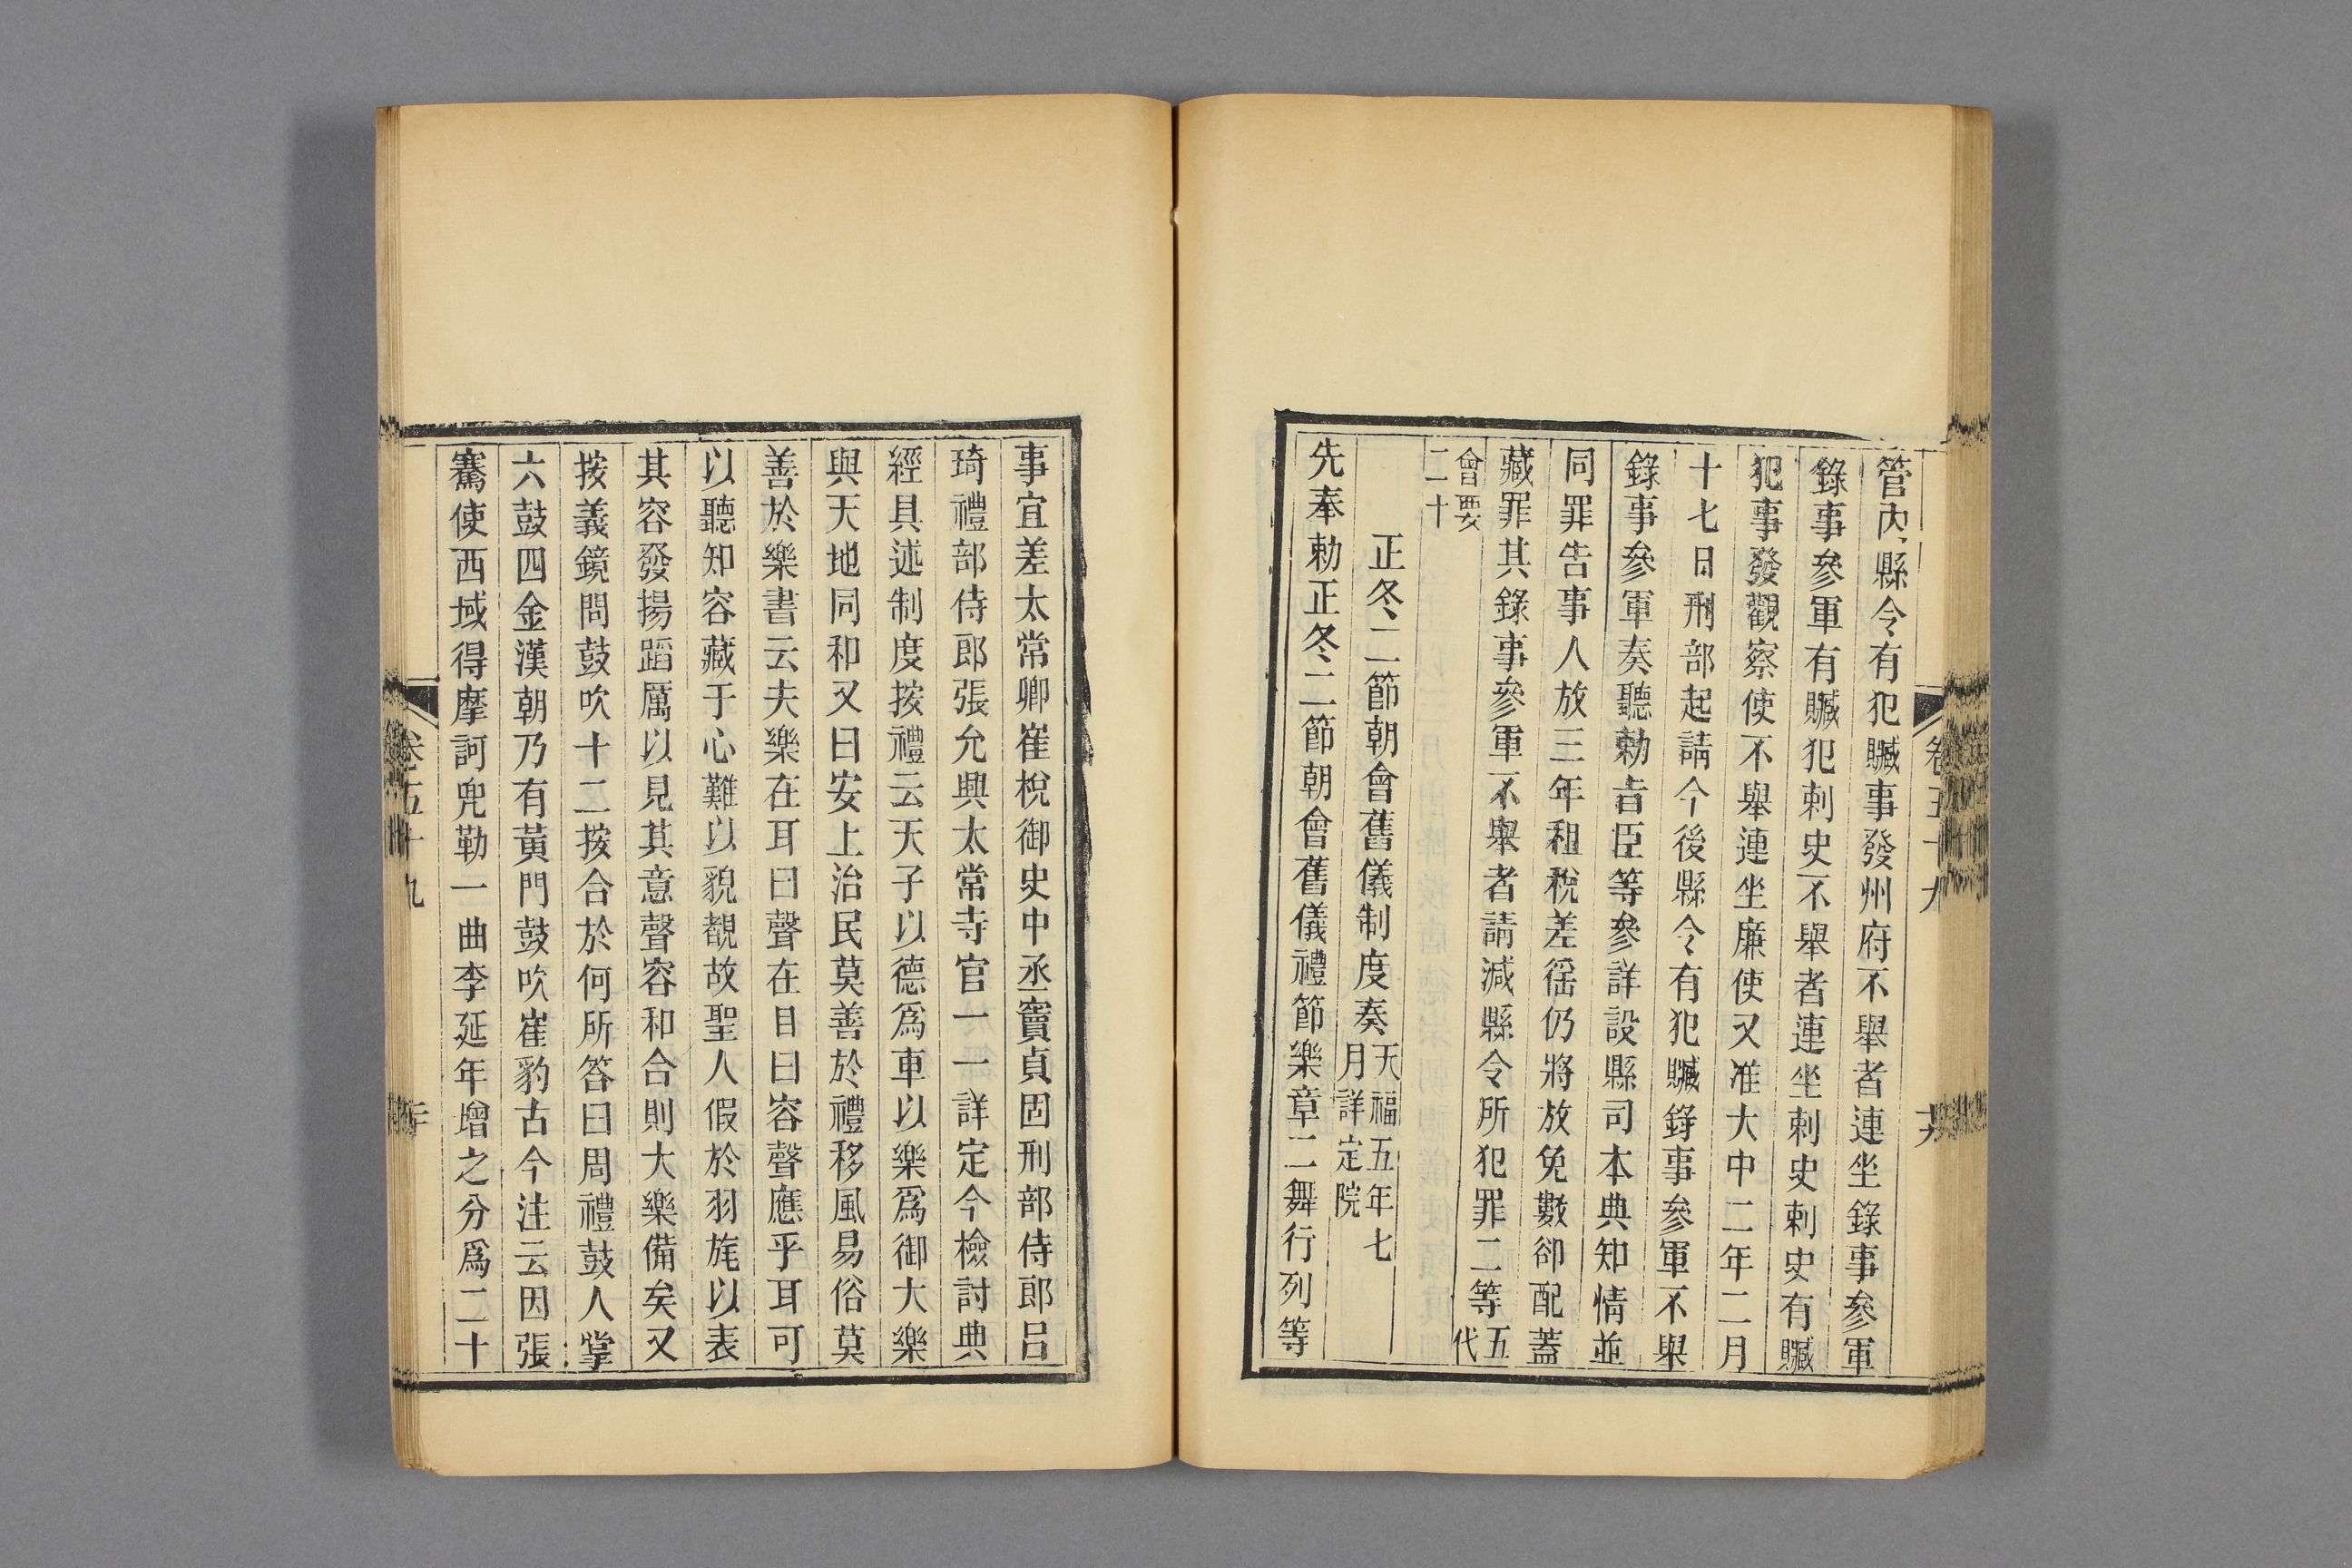 管內縣令有犯贓事發州府不舉者連坐錄事參軍
錄事參軍有贓犯刺史不舉者連坐刺史刺史有贓
犯事發觀察使不舉連坐廉使又准大中二年二月
十七日刑部起請今後縣令有犯贓錄事參軍不舉
錄事參軍奏聽勅旨臣等參詳設縣司本典知情並
同罪告事人放三年租稅差徭仍將放免數卻配蓋
藏罪其錄事參軍不舉者請減縣令所犯罪二等五代
會要二十
正冬二節朝會舊儀制度奏天福五年七月詳定院
先奉勅正冬二節朝會舊儀禮節樂章二舞行列等
卷五十九
事宜差太常卿崔梲御史中丞竇貞固刑部侍郎呂
琦禮部侍郎張允興太常寺官一一詳定今檢討典
經具述制度按禮云天子以德爲車以樂爲御大樂
與天地同和又曰安上治民莫善於禮移風易俗莫
善於樂書云夫樂在耳曰聲在目曰容聲應乎耳可
以聽知容藏于心難以貌覩故聖人假於羽旄以表
其容發揚蹈厲以見其意聲容和合則大樂備矣又
按義鏡問鼓吹十二按合於何所答曰周禮鼓人掌
六鼓四金漢朝乃有黃門鼓吹崔豹古今注云因張
騫使西域得摩訶兜勒一曲李延年增之分爲二十
卷五十九